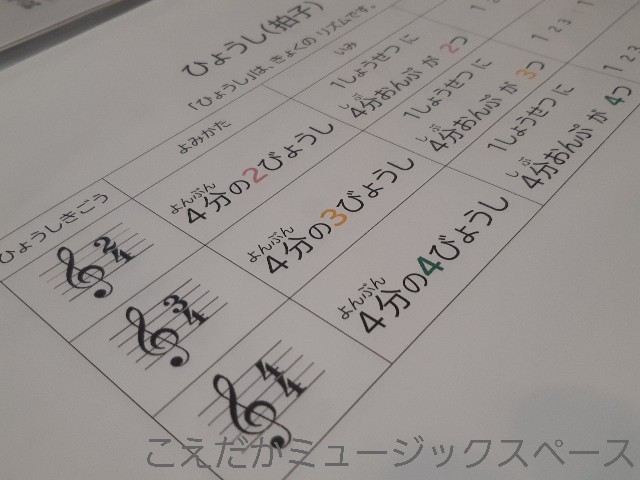 ひょうし(拍子)
「ひょうし」は、きょくの リズムです。
ひょうしきごう
よみかた
いみ
2
4
よんぶん
4分の2びょうし
1しょうせつ に
しぶ
4分おんぷ が 2つ
1 2
3
4
よんぶん
4分の3びょうし
1しょうせつ に
しぶ
4分おんぷ が 3つ
1 2 3
4
4
よんぶん
4分の4びょうし
1しょうせつ に
しぶ
4分おんぷ が 4つ
1 2 3
こえだかミュージックスペース